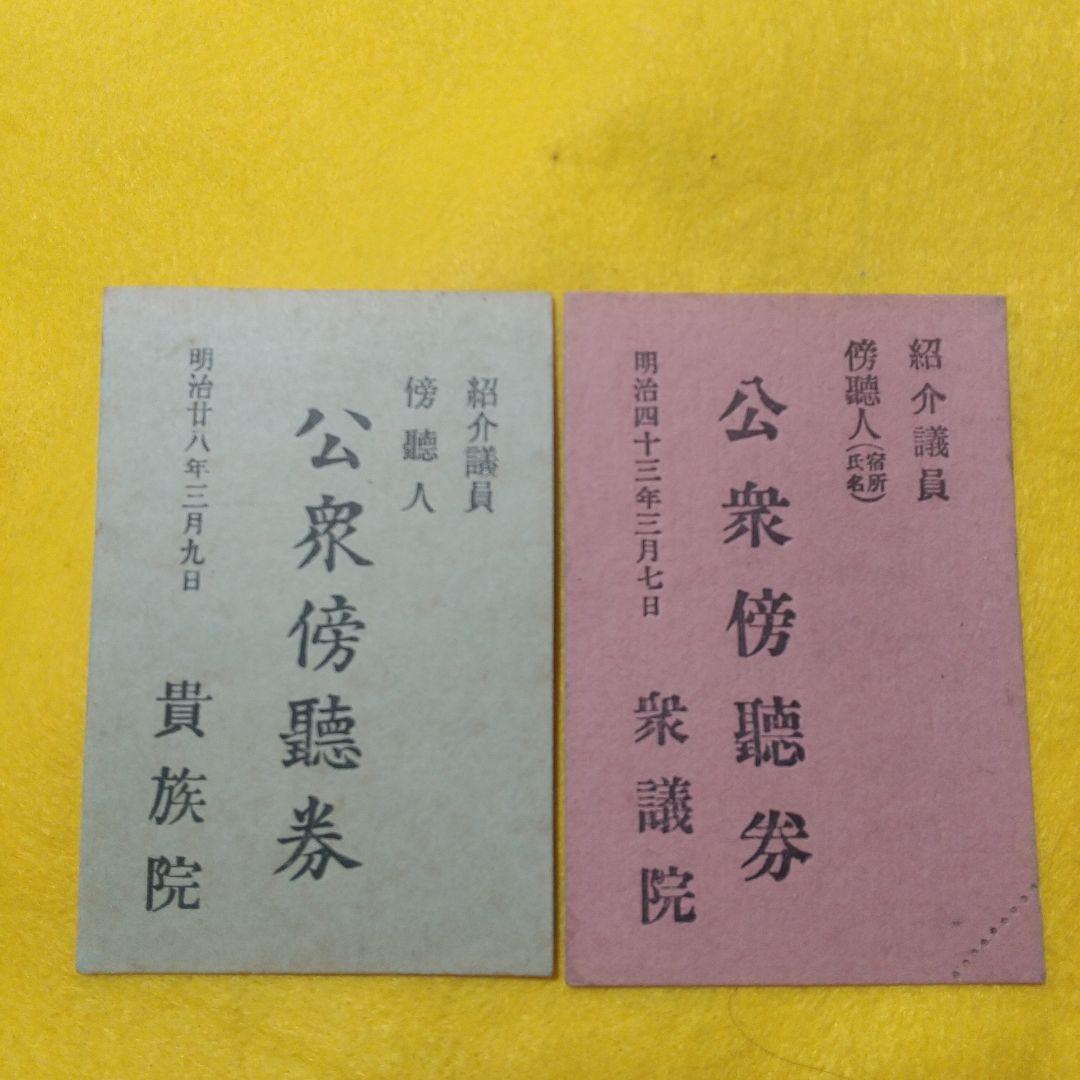 紹介議員
傍聽人
公衆傍聽券
明治廿八年三月九日
貴族院
紹介議員
傍聽人(宿所氏名)
公衆傍聽券
明治四十三年三月七日
衆議院